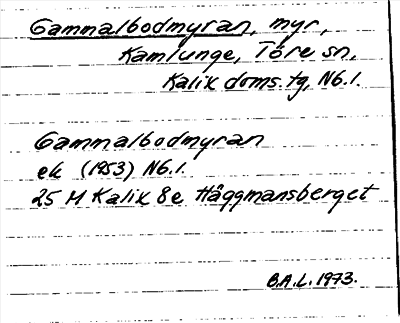 Gammalbodmyran, myr,
Kamlunge, Töre sn,
Kalix doms. tg, Nb. l.
Gammalbodmyran
ek (1953) Nb. l.
25 M Kalix 8e Häggmansberget
B.A.L. 1973.